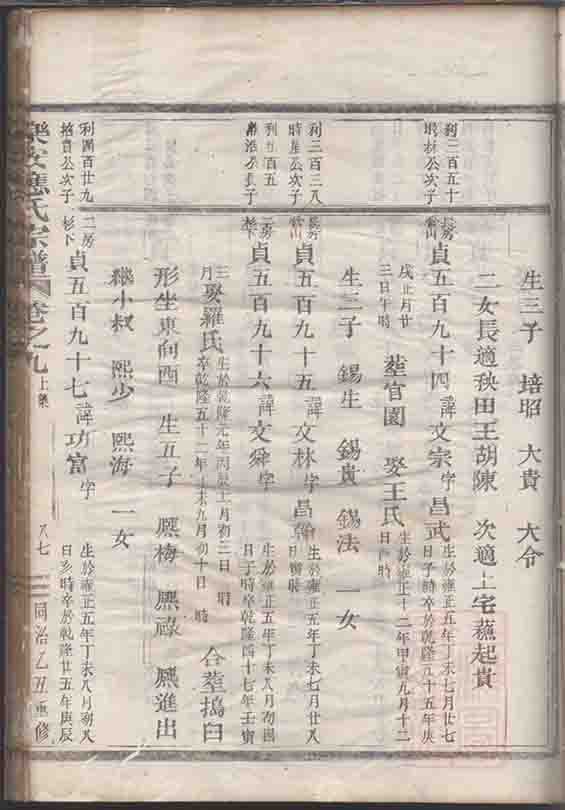 生三子 培昭 大貴 大令
二女長適秧田王胡陳 次適上宅蘓起貴
利三百五十
公次子
長房
貞五百九十四諱文宗字昌武
生於雍正五年丁未七月廿七
日子時卒於乾隆五十五年庚
戌正月廿
三日午時
葬官園 娶王氏
生於雍正十二年甲寅九月十二
日酉時
生三子 錫生 錫貴 錫法 一女
利三百三八
時 公次子
長房
貞五百九十五諱文林字昌
生於雍正五年丁未七月廿八
日寅時
利五百五
長子
二房
杉下
貞五百九十六諱文舜字
生於雍正五年丁未八月初四
日子時卒乾隆四十七年壬寅
三
月
娶羅氏
生於乾隆元年丙辰十一月初二日 時
卒乾隆五十二年丁未九月初十日 時
合葬搗臼
形坐東向酉 生五子 熈梅 熈祿 熈進出
繼小叔 熈少 熈海 一女
利四百廿九
公次子
二房
杉下
貞五百九十七諱功富字
生於雍正五年丁未八月初八
日亥時卒於乾隆廿五年庚辰
樂安應氏宗譜 卷之九 上集 八七 同治乙丑重修